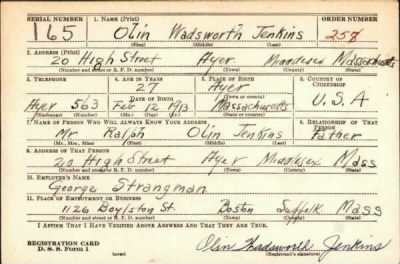 SERIAL NUMBER 1. NAME (Print) ORDER NUMBER
165 Olin Wadsworth Jenkins 258
(First) (Middle) (Last)
2. ADDRESS (Print)
20 High Street Ayer Middlesex Massachusetts
(Number and street or R. F. D. number) (Town) (County) (State)
3. TELEPHONE 4. AGE IN YEARS 5. PLACE OF BIRTH 6. COUNTRY OF CITIZENSHIP
27 Ayer
(Town or county)
Ayer 563 DATE OF BIRTH Feb 12 1913 Massachusetts U.S.A
(Exchange) (Number) (Mo.) (Day) (Yr.) (State or country)
7. NAME OF PERSON WHO WILL ALWAYS KNOW YOUR ADDRESS 8. RELATIONSHIP OF THAT PERSON
Mr Ralph Olin Jenkins Father
(Mr., Mrs., Miss) (First) (Middle) (Last)
9. ADDRESS OF THAT PERSON
20 High Street Ayer Middlesex Mass
(Number and street or R. F. D. number) (Town) (County) (State)
10. EMPLOYER'S NAME
George Strangman
11. PLACE OF EMPLOYMENT OR BUSINESS
1126 Boylston St. Boston Suffolk Mass
(Number and street or R. F. D. number) (Town) (County) (State)
I AFFIRM THAT I HAVE VERIFIED ABOVE ANSWERS AND THAT THEY ARE TRUE.
REGISTRATION CARD
D. S. S. Form 1 (over) Olin Wadsworth Jenkins
(Registrant's signature)